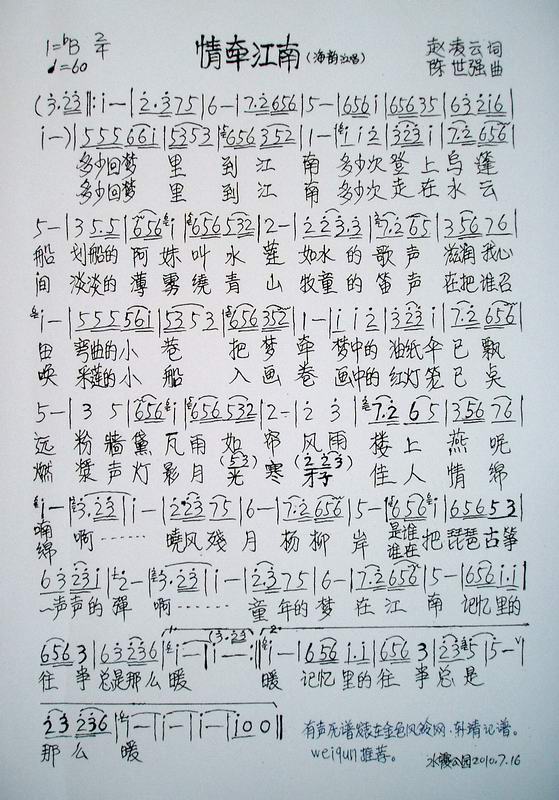 1=♭B 2/4 情牵江南(海韵注唱) 赵凌云词
♩=60 陈世强曲
(3·23‖:i-|2·375|6-|7·2656|5-|656i|65635|632i6|
i-)|55566i|5353|656352|1-|i i2|323i|7·2656|
多少回梦 里 到江 南 多少次登上乌蓬
多少回梦 里 到江 南 多少次走在水云
5-|35·5|656i|656532|2-|223·3|7·265|35676|
船 划船的阿妹叫水莲 如水的歌声 滋润我心
间 淡淡的薄雾绕青山 牧童的笛声 在把谁召
i-|55556i|5353|656352|1-|i i2|323i|7·2656|
田 弯曲的小巷 把梦牵 梦中的油纸伞已飘
唤 采莲的小船 入画卷 画中的红灯笼已点
5-|3 5|656i|656532|2-|2 3|7·265|35676|
远 粉墙黛瓦雨如帘 风雨 楼上燕呢
燃 桨声灯影月光寒 才子 佳人情绵
i-|3·23|i-|2·2375|6-|7·2656|5-|656i|656553|
喃 啊…… 晓风残月杨柳岸 是谁把琵琶古筝
绵 谁在
6323i|2-|3·23|i-|2·375|6-|7·2656|5-|656i·i|
一声声的弹 啊…… 童年的梦在江南 记忆里的
6563|63236|i-|i-:‖i-|656i·i|6563|235|5-|
往事总是那么暖 暖 记忆里的往事总是
23236|i-|i-|i-|i00‖
那么 暖
有声乐谱发表在金色风铃网·轩靖记谱。
weiqun推荐。
水霞公园2010.7.16